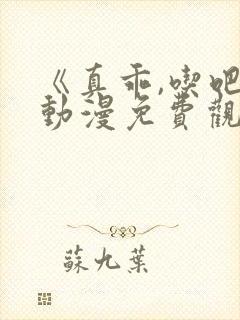 《真乖,喫吧
動漫免費觀
蘇九葉